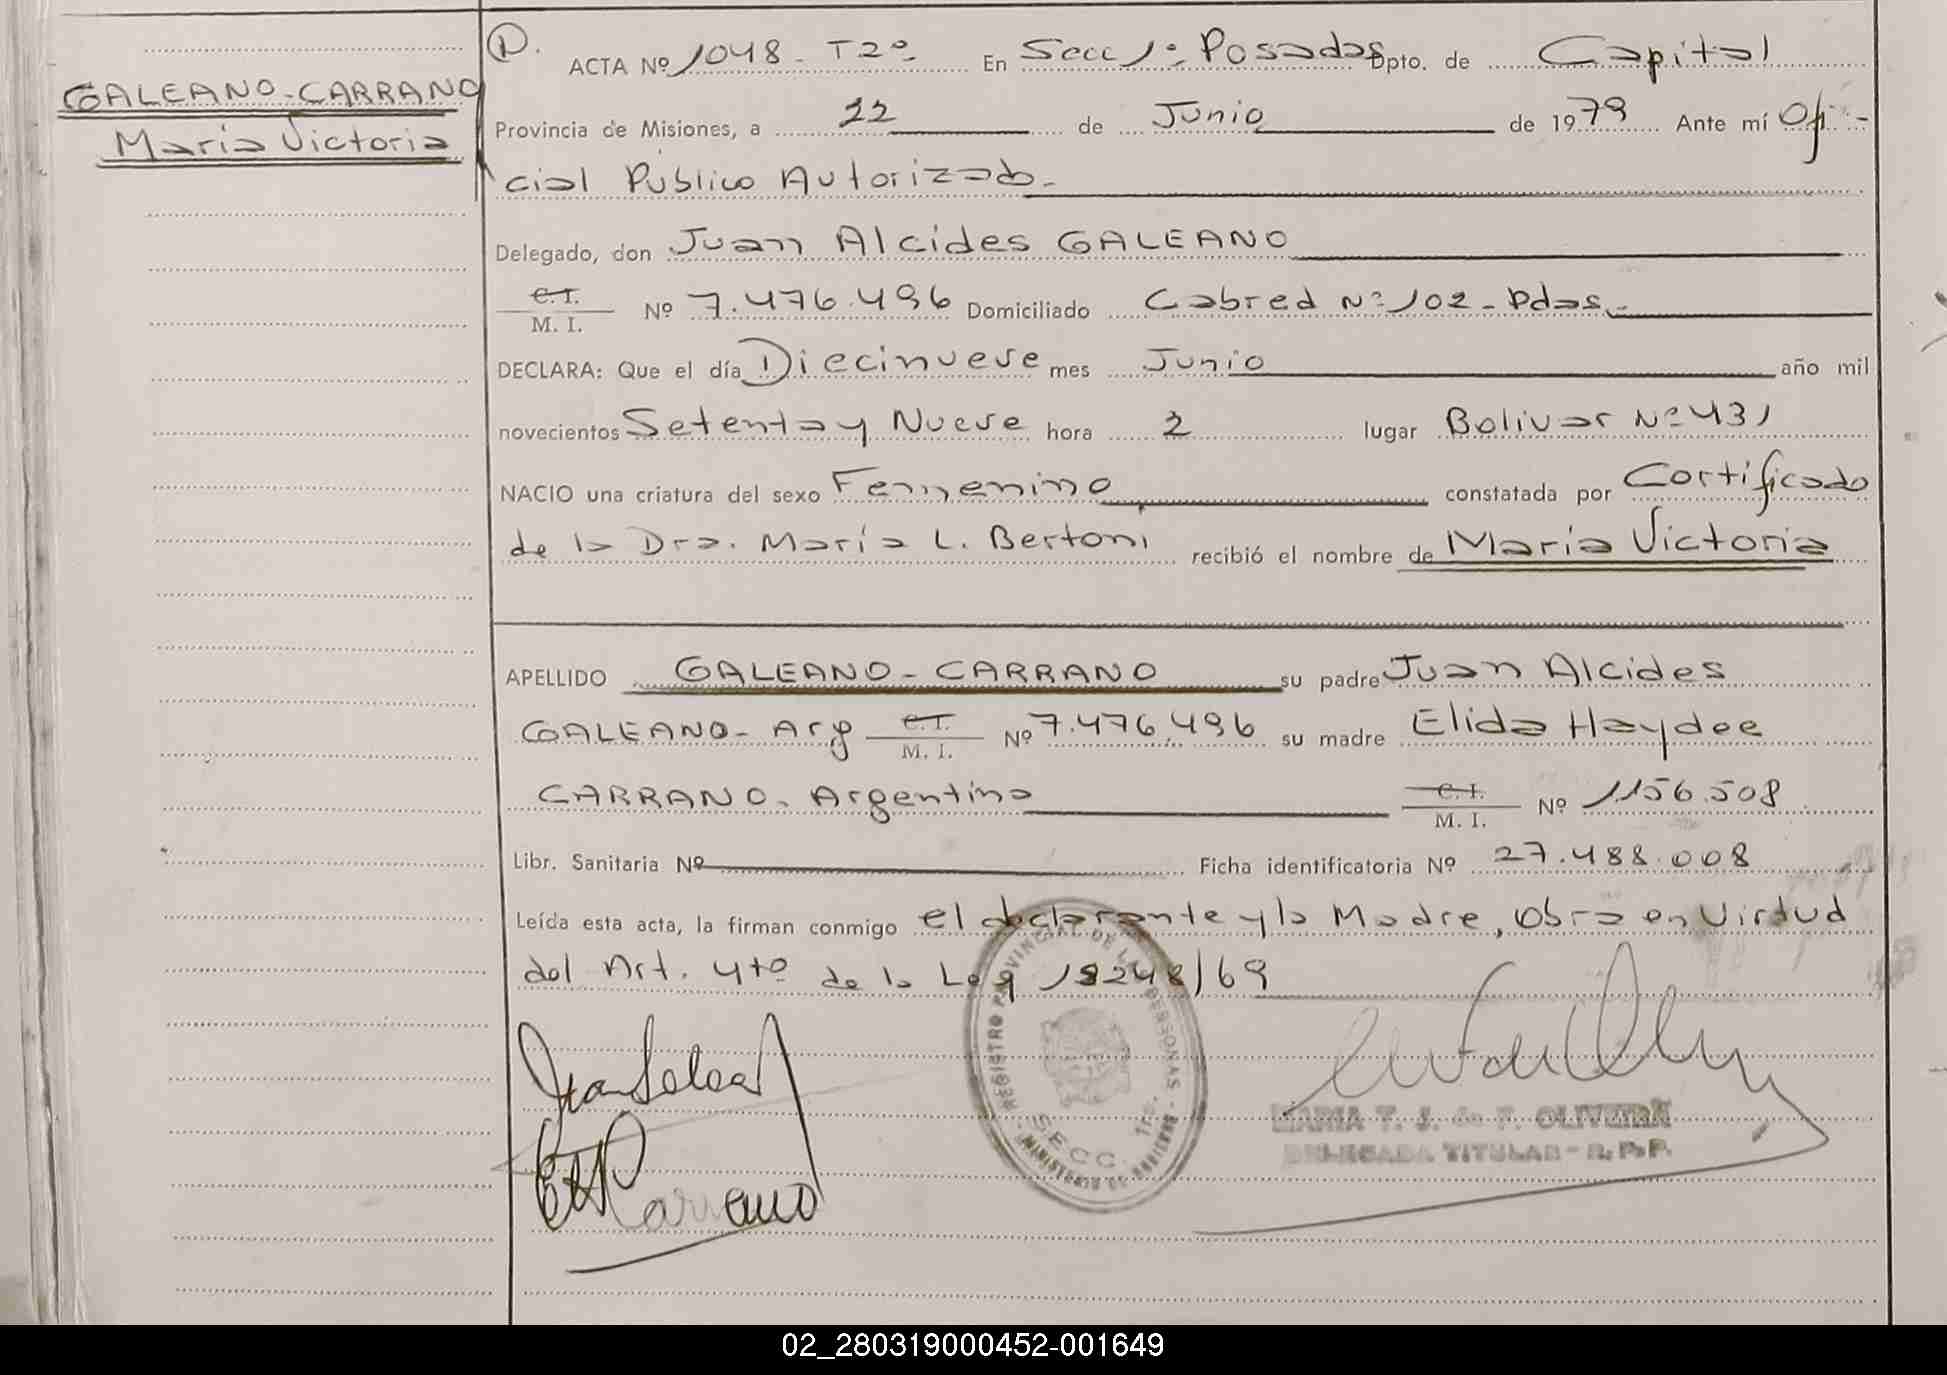 GALEANO-CARRANO
María Victoria
D.
ACTA Nº 1048 - T2º En Secc 1ª Posadas Dpto. de Capital
Provincia de Misiones, a 22 de Junio de 1979 Ante mí Ofi-
cial Público Autorizado.
Delegado, don Juan Alcides GALEANO
C.I. / M. I. Nº 7.476.496 Domiciliado Cabred Nº 102 - Pdas.-
DECLARA: Que el día Diecinueve mes Junio año mil
novecientos Setenta y Nueve hora 2 lugar Bolivar Nº 431
NACIO una criatura del sexo Femenino constatada por Certificado
de la Dra. María L. Bertoni recibió el nombre de María Victoria
APELLIDO GALEANO - CARRANO su padre Juan Alcides
GALEANO - Arg C.I. / M. I. Nº 7.476.496 su madre Elida Haydee
CARRANO. Argentina C.I. / M. I. Nº 1156.508
Libr. Sanitaria Nº Ficha identificatoria Nº 27.488.008
Leída esta acta, la firman conmigo el declarante y la Madre, Obra en Virtud
del Art. 4to de la Ley 18248/69
REGISTRO PROVINCIAL DE LAS PERSONAS
SECC. 1ra.
MINISTERIO DE GOBIERNO
Carrano
MARIA T. J. de F. OLIVEIRA
DELEGADA TITULAR - R. P. P.
02_280319000452-001649